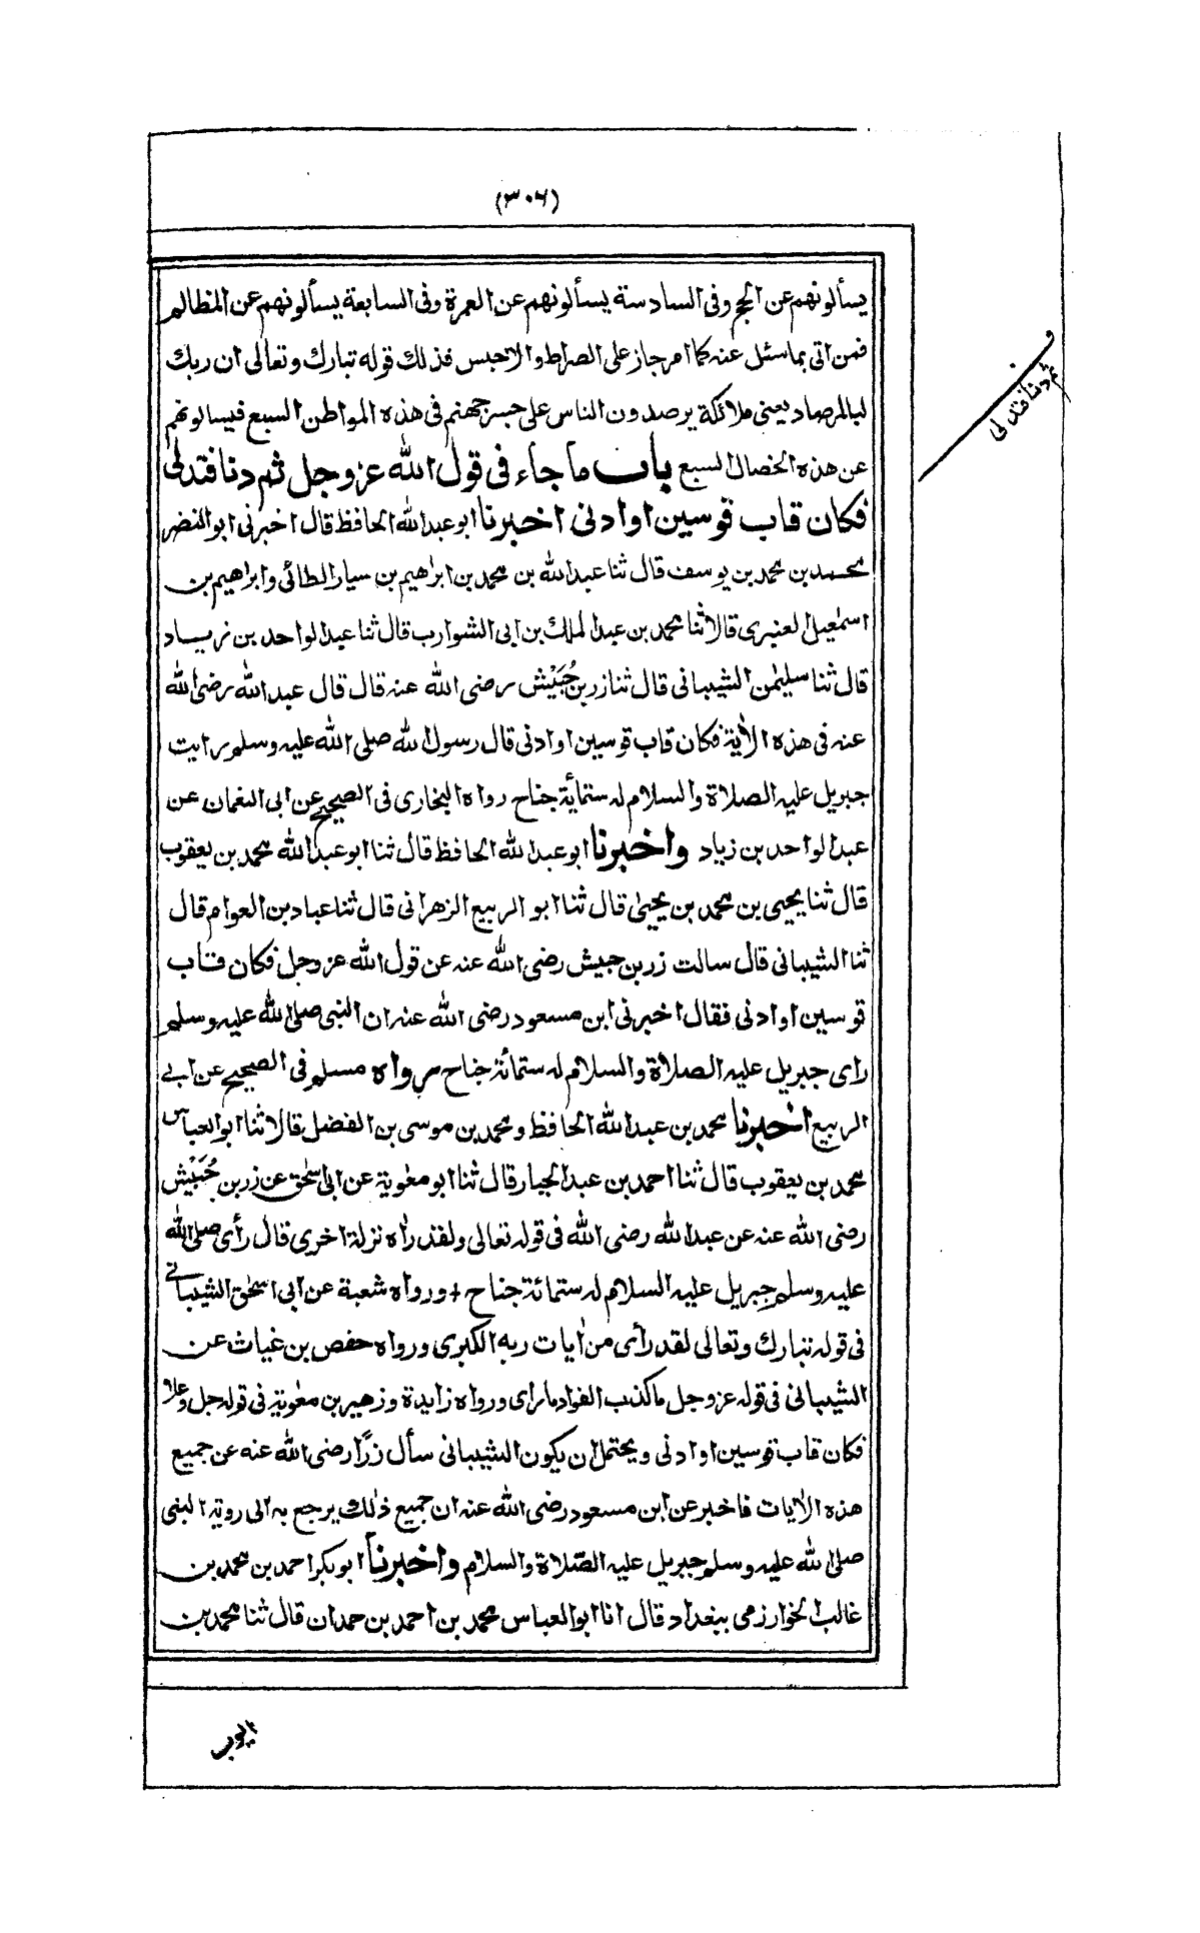 (٣٠٦)
يسألونهم عن الحج وفى السادسة يسألونهم عن العمرة وفى السابعة يسألونهم عن المظالم
فمن اتى بما سئل عنه كما امر جاز على الصراط والاحبس فذلك قوله تبارك وتعالى ان ربك
لبالمرصاد يعنى ملائكة يرصدون الناس على جسر جهنم فى هذه المواطن السبع فيسالونهم
عن هذه الخصال السبع باب ما جاء فى قول الله عزوجل ثم دنا فتدلى
فكان قاب قوسين اوادنى اخبرنا ابو عبدالله الحافظ قال اخبرنى ابو النضر
محمد بن محمد بن يوسف قال ثنا عبدالله بن محمد بن ابراهيم بن سيار الطائى وابراهيم بن
اسمٰعيل العنبرى قالا ثنا محمد بن عبدالملك بن ابى الشوارب قال ثنا عبدالواحد بن زياد
قال ثنا سليمٰن الشيبانى قال ثنا زر بن حُبَيْش رضى الله عنه قال قال عبدالله رضى الله
عنه فى هذه الاٰية فكان قاب قوسين اوادنى قال رسول الله صلى الله عليه وسلم رايت
جبريل عليه الصلاة والسلام له ستمائة جناح رواه البخارى فى الصحيح عن ابى النعمان عن
عبدالواحد بن زياد واخبرنا ابو عبدالله الحافظ قال ثنا ابو عبدالله محمد بن يعقوب
قال ثنا يحيى بن محمد بن يحيىٰ قال ثنا ابو الربيع الزهرانى قال ثنا عباد بن العوام قال
ثنا الشيبانى قال سالت زر بن حبيش رضى الله عنه عن قول الله عزوجل فكان قاب
قوسين اوادنى فقال اخبرنى ابن مسعود رضى الله عنه ان النبى صلى الله عليه وسلم
راى جبريل عليه الصلاة والسلام له ستمائة جناح رواه مسلم فى الصحيح عن ابى
الربيع اخبرنا محمد بن عبدالله الحافظ ومحمد بن موسى بن الفضل قالا ثنا ابوالعباس
محمد بن يعقوب قال ثنا احمد بن عبدالجبار قال ثنا ابو معٰوية عن ابى اسحٰق عن زر بن حُبَيْش
رضى الله عنه عن عبدالله رضى الله فى قوله تعالى ولقد راٰه نزلة اخرى قال رأى صلى الله
عليه وسلم جبريل عليه السلام له ستمائة جناح + ورواه شعبة عن ابى اسحٰق الشيبانى
فى قوله تبارك وتعالى لقد رأى من اٰيات ربه الكبرى ورواه حفص بن غياث عن
الشيبانى فى قوله عزوجل ما كذب الفواد ما راى ورواه زايدة وزهير بن معٰوية فى قوله جل وعلا
فكان قاب قوسين اوادنى ويحتمل ان يكون الشيبانى سأل زرًا رضى الله عنه عن جميع
هذه الاٰيات فاخبر عن ابن مسعود رضى الله عنه ان جميع ذٰلك يرجع به الى روية النبى
صلى الله عليه وسلم جبريل عليه الصّلاة والسلام واخبرنا ابو بكر احمد بن محمد بن
غالب الخوارزمى ببغداد قال انا ابوالعباس محمد بن احمد بن حمدان قال ثنا محمد بن
ايوب
دنا فتدلى